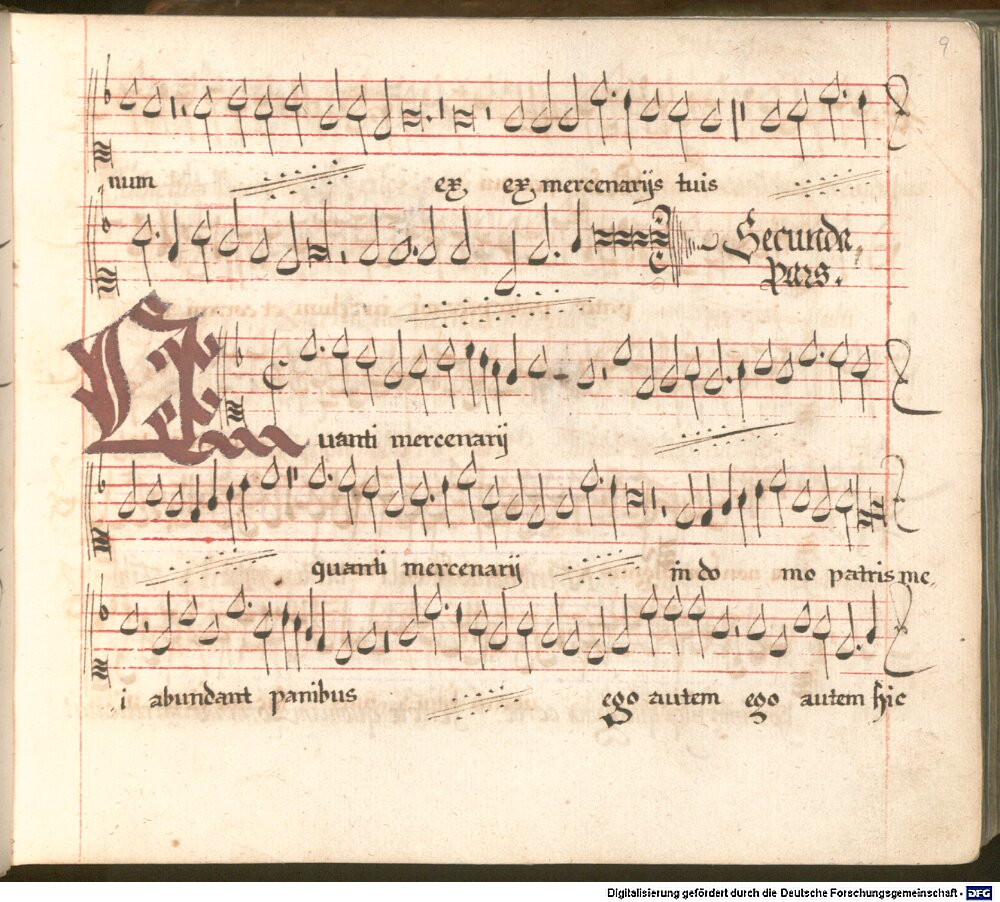 9
num ex, ex, mercenarijs tuis
Secunda
pars.
Quanti mercenarij
quanti mercenarij in do mo patris me,
i abundant panibus ego autem ego autem hic
Digitalisierung gefördert durch die Deutsche Forschungsgemeinschaft - DFG